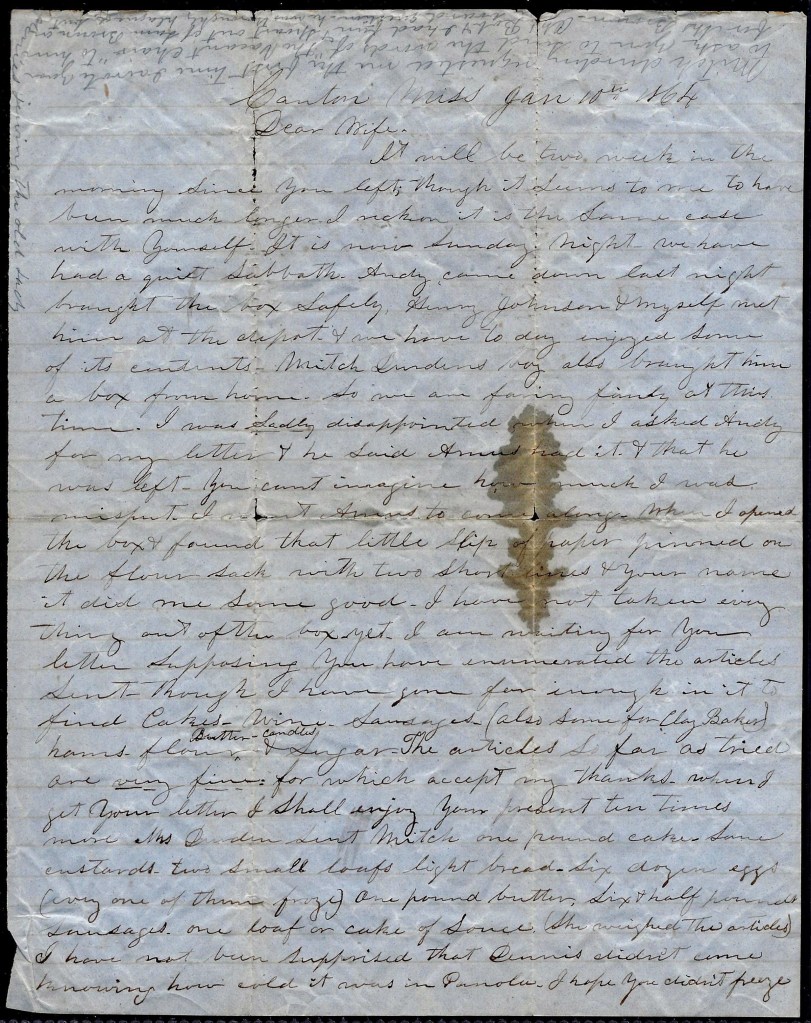 Canton Miss Jan 10th 1864
Dear Wife.
It will be two week in the
morning since you left, though it seems to me to have
been much longer. I reckon it is the same case
with yourself. It is now Sunday night. we have
had a quiet Sabbath. Andy came down last night
brought the box safely, Henry Johnson & myself met
him at the depot. & we have to day enjoyed some
of its contents. Mitch Durdens boy also brought him
a box from home. So we are faring finely at this
time. I was sadly disappointed when I asked Andy
for my letter & he said Amus had it. & that he
was left. You cant imagine how much I was
I want Amus to come along. When I opened
the box & found that little slip of paper pinned on
the flour sack with two short lines & your name
it did me some good. I have not taken every
thing out of the box yet. I am waiting for you
letter supposing you have enumerated the articles
sent. though I have gone far inough in it to
find Cakes. Wine. Sausages. (also some for Clay Baker)
Butter candles
hams. flour & Sugar. The articles so far as tried
are very fine. for which accept my thanks. when I
get your letter I shall enjoy your present ten times
more Mrs Durden sent Mitch one pound cake. some
custards. two small loafs light bread. six dozen eggs
(every one of them froze) one pound butter, six & half pounds
sausages. one loaf or cake of souce (she weighed the articles)
I have not been supprised that Dennis didn't come
knowing how cold it was in Panola. I hope you didn't freeze
the old lady
Mitch Durding requested me the first time I wrote you
to ask you to the words of "the vacant chair" to him